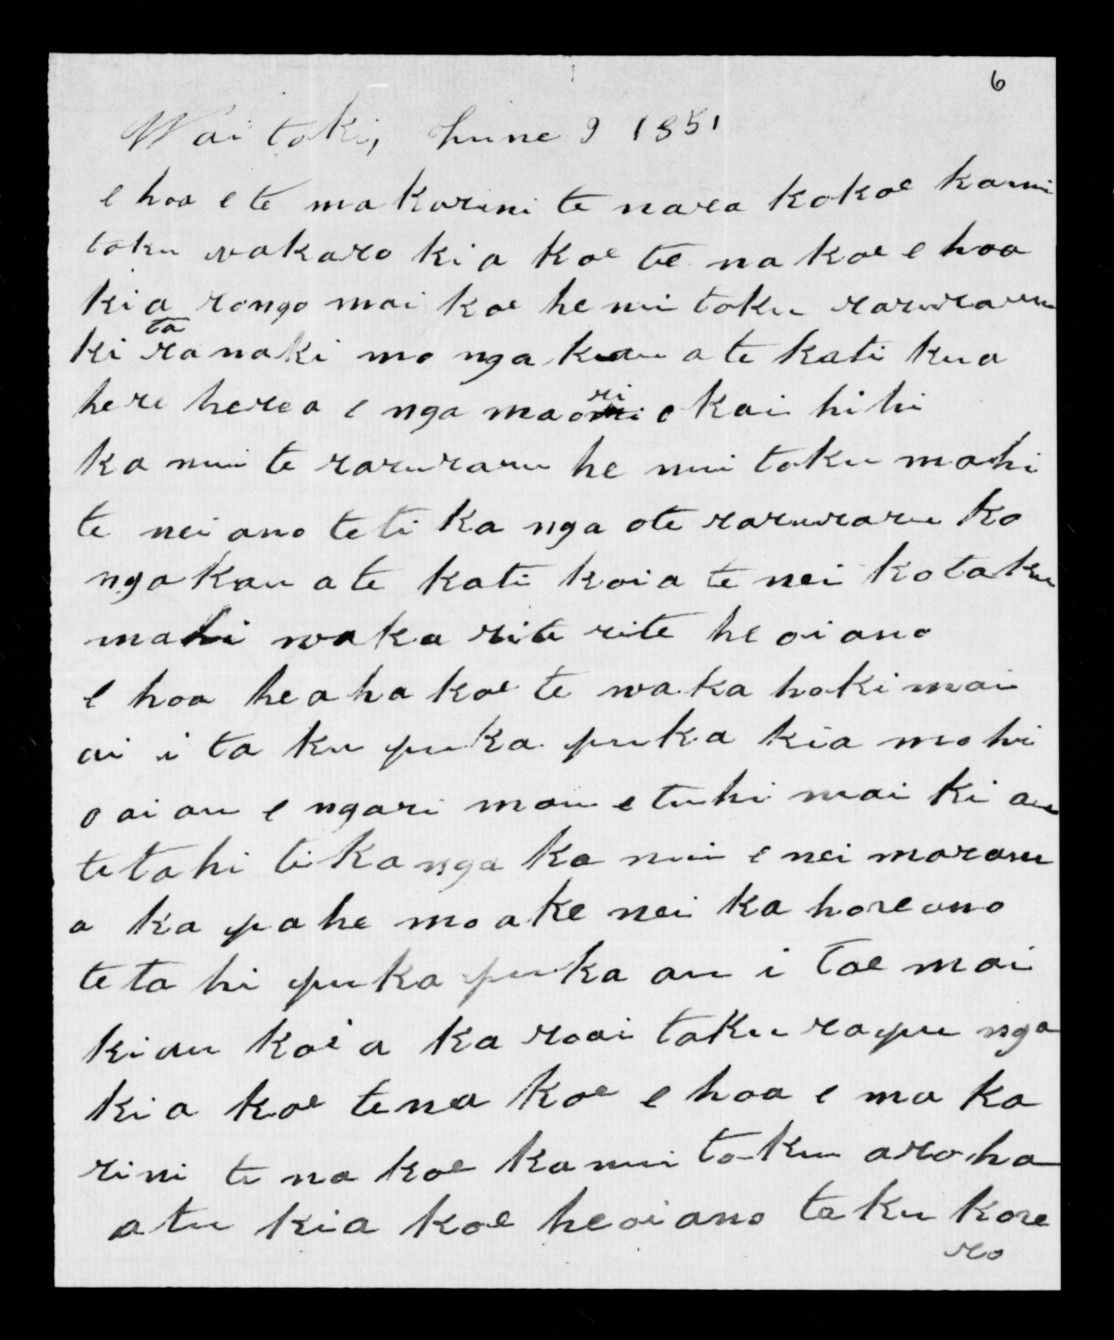 6
Wai toki, June 9 1851
e hoa e te makarini te naea kokoe kanui
toku wakaro ki a koe te na koe e hoa
kia rongo mai koe he nui toku raruraru
ki taranaki mo nga kau a te kati kua
here herea e nga maori o kai hihi
ka nui te raruraru he nui toku mahi
te nei ano te ti ka nga o te raruraru ko
nga kau a te kati koia te nei ko taku
mahi waka rite rite he oi ano
e hoa he aha koe te waka hoki mai
ai i ta ku puka puka kia mohi
o ai au e ngari mau e tuhi mai ki au
te tahi tikanga ka nui e nei marama
a ka pahe mo ake nei ka hore ano
te ta hi puka puka au i tae mai
ki au koi a ka roai taku rapu nga
ki a koe tena koe e hoa e ma ka
rini te na koe kanui taku aroha
atu kia koe heoiano taku kore
ro